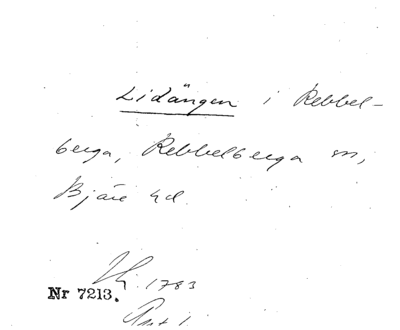 Lidängen i Rebbel-
berga, Rebbelberga sn,
Bjäre hd.
1783
Nr 7213.